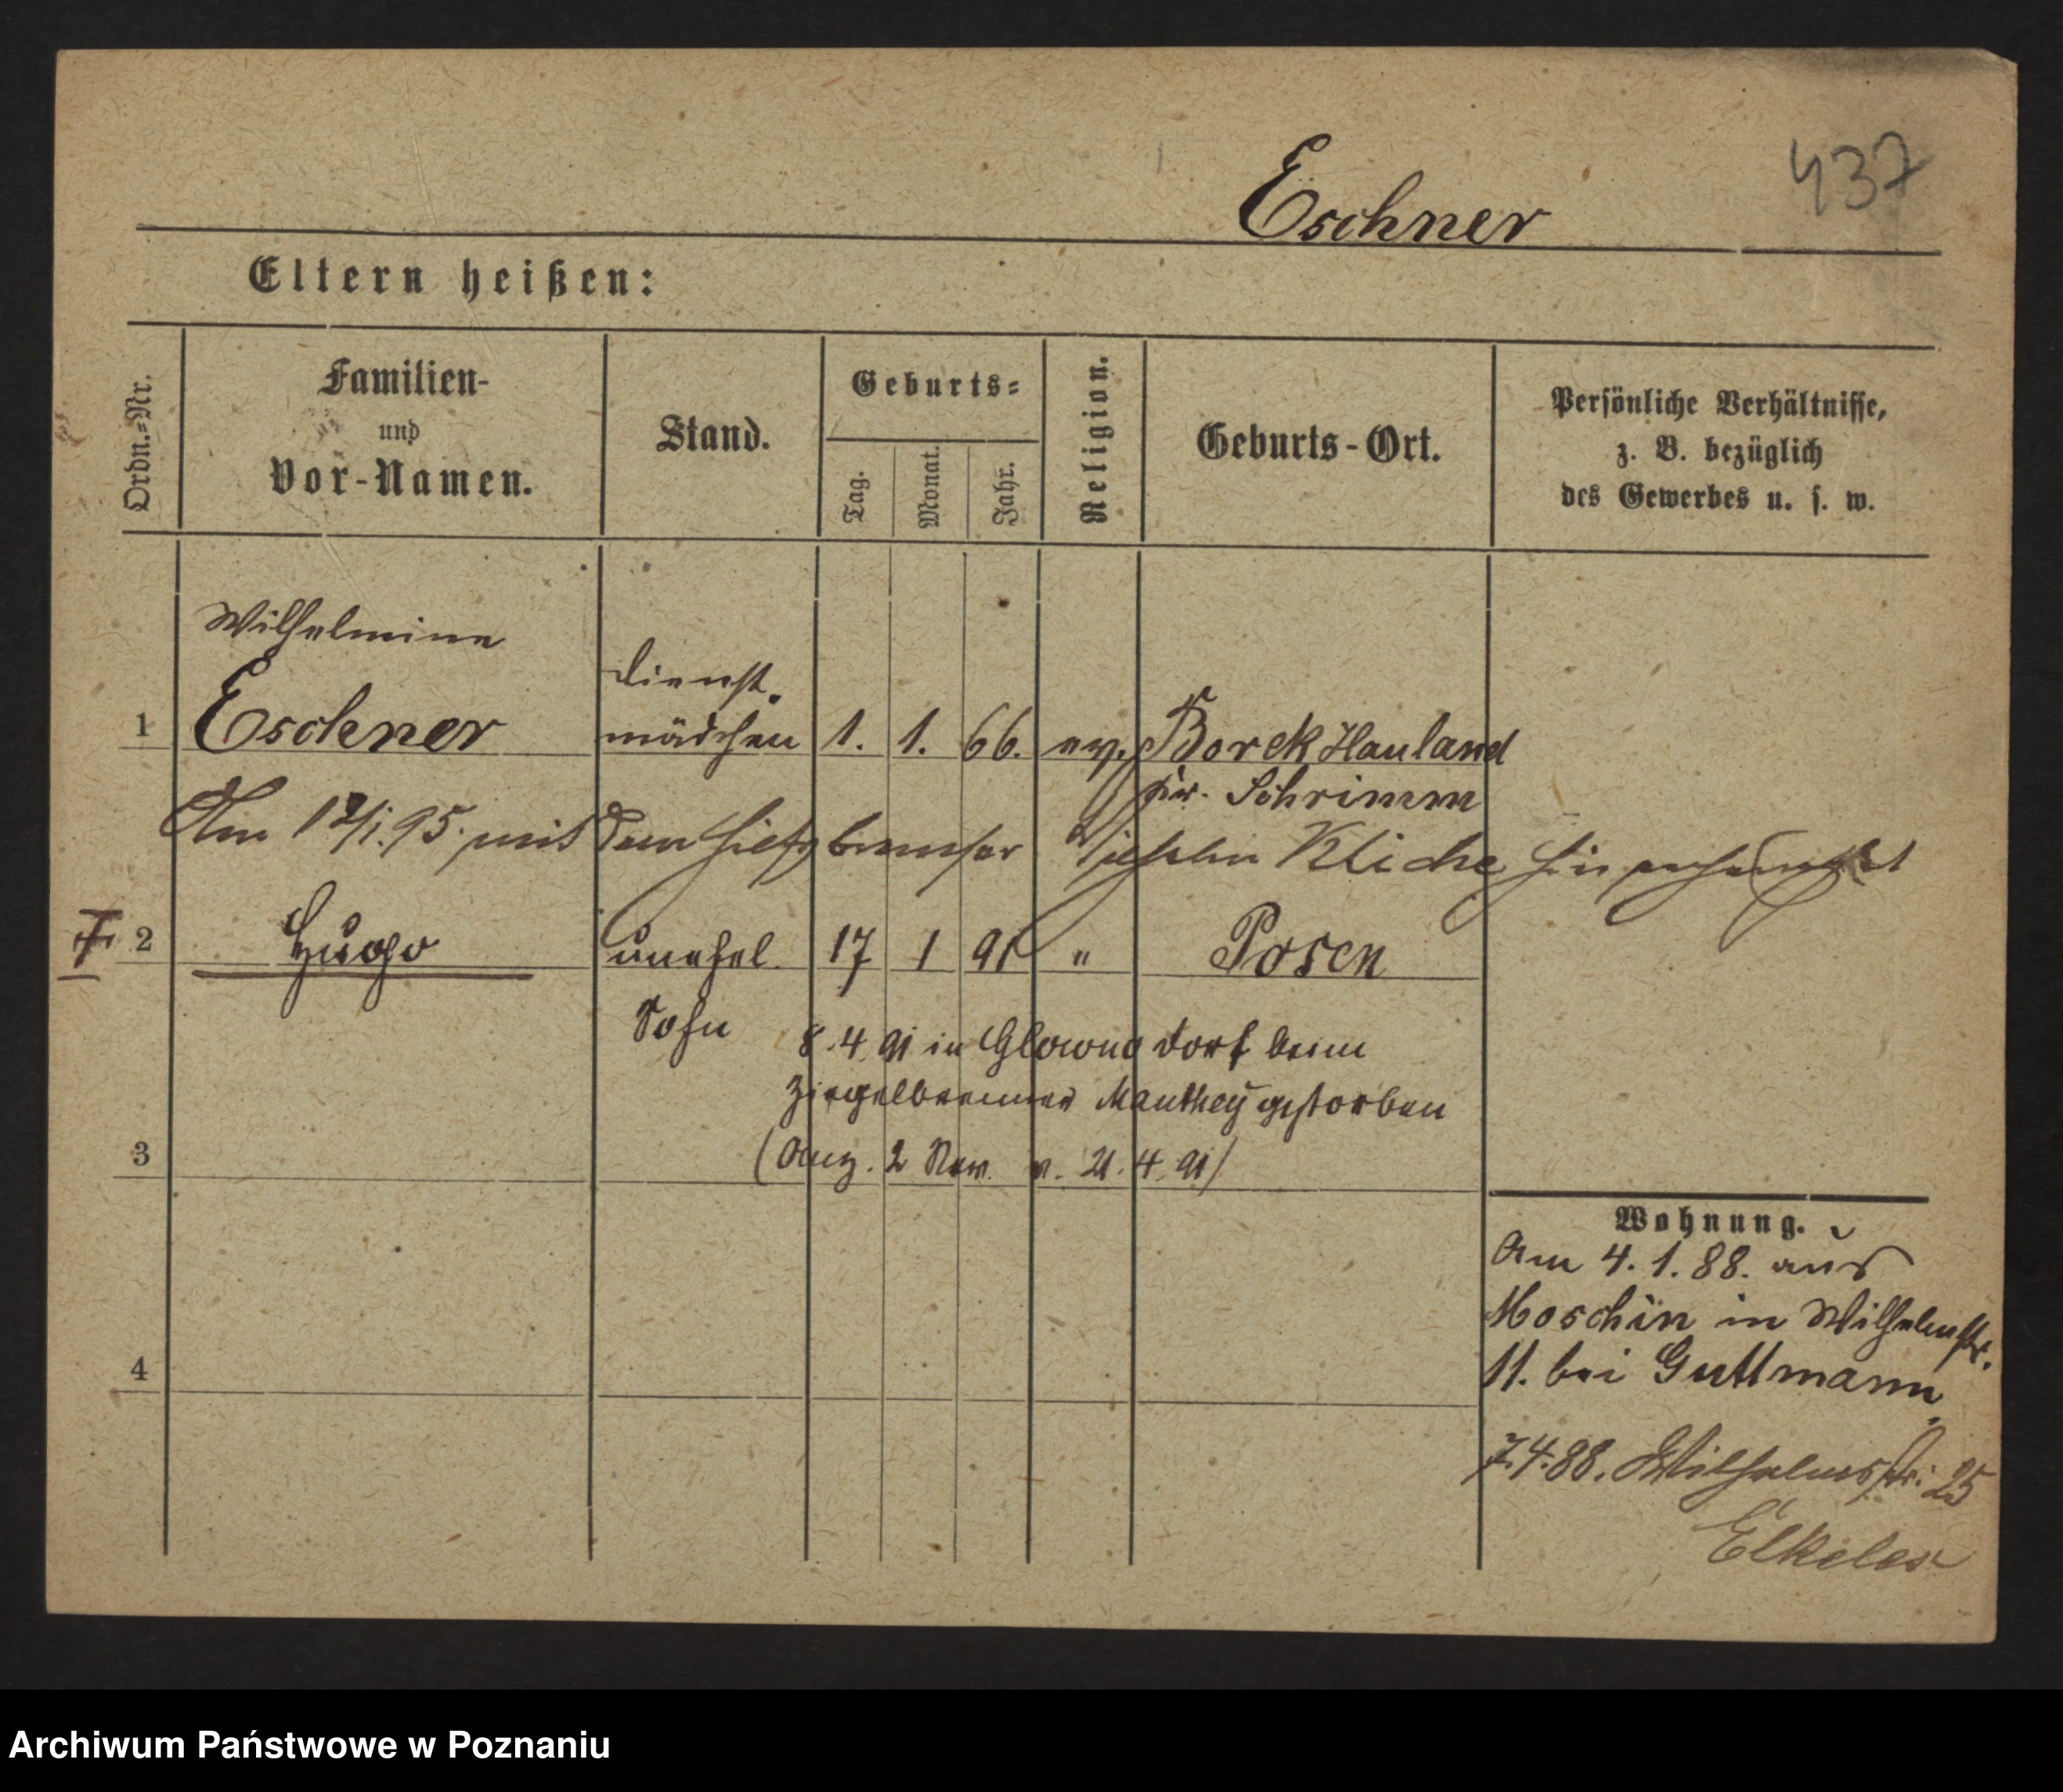 437
Eschner
Eltern heißen:
Ordn.-Nr.
Familien-
und
Vor-Namen.
Stand.
Geburts-
Tag.
Monat.
Jahr.
Religion.
Geburts-Ort.
Persönliche Verhältnisse,
z. B. bezüglich
des Gewerbes u. s. w.
Wilhelmine
1 Eschner
Dienst-
mädchen
1. 1. 66. ev. Borck Hauland
Kr. Schrimm
Am 17/1.95. mit dem Kliche
2 Hugo
unehel.
Sohn
17 1 91 " Posen
8.4.91 in Glowno Dorf beim
Ziegelbrenner Manthey gestorben
(Anz. 2 Rev. v. 21.4.91)
3
4
Wohnung.
Am 4.1.88. aus
Moschin in Wilhelmstr.
11. bei Guttmann
7.4.88. Wilhelmsstr. 25
Elkeles
Archiwum Państwowe w Poznaniu